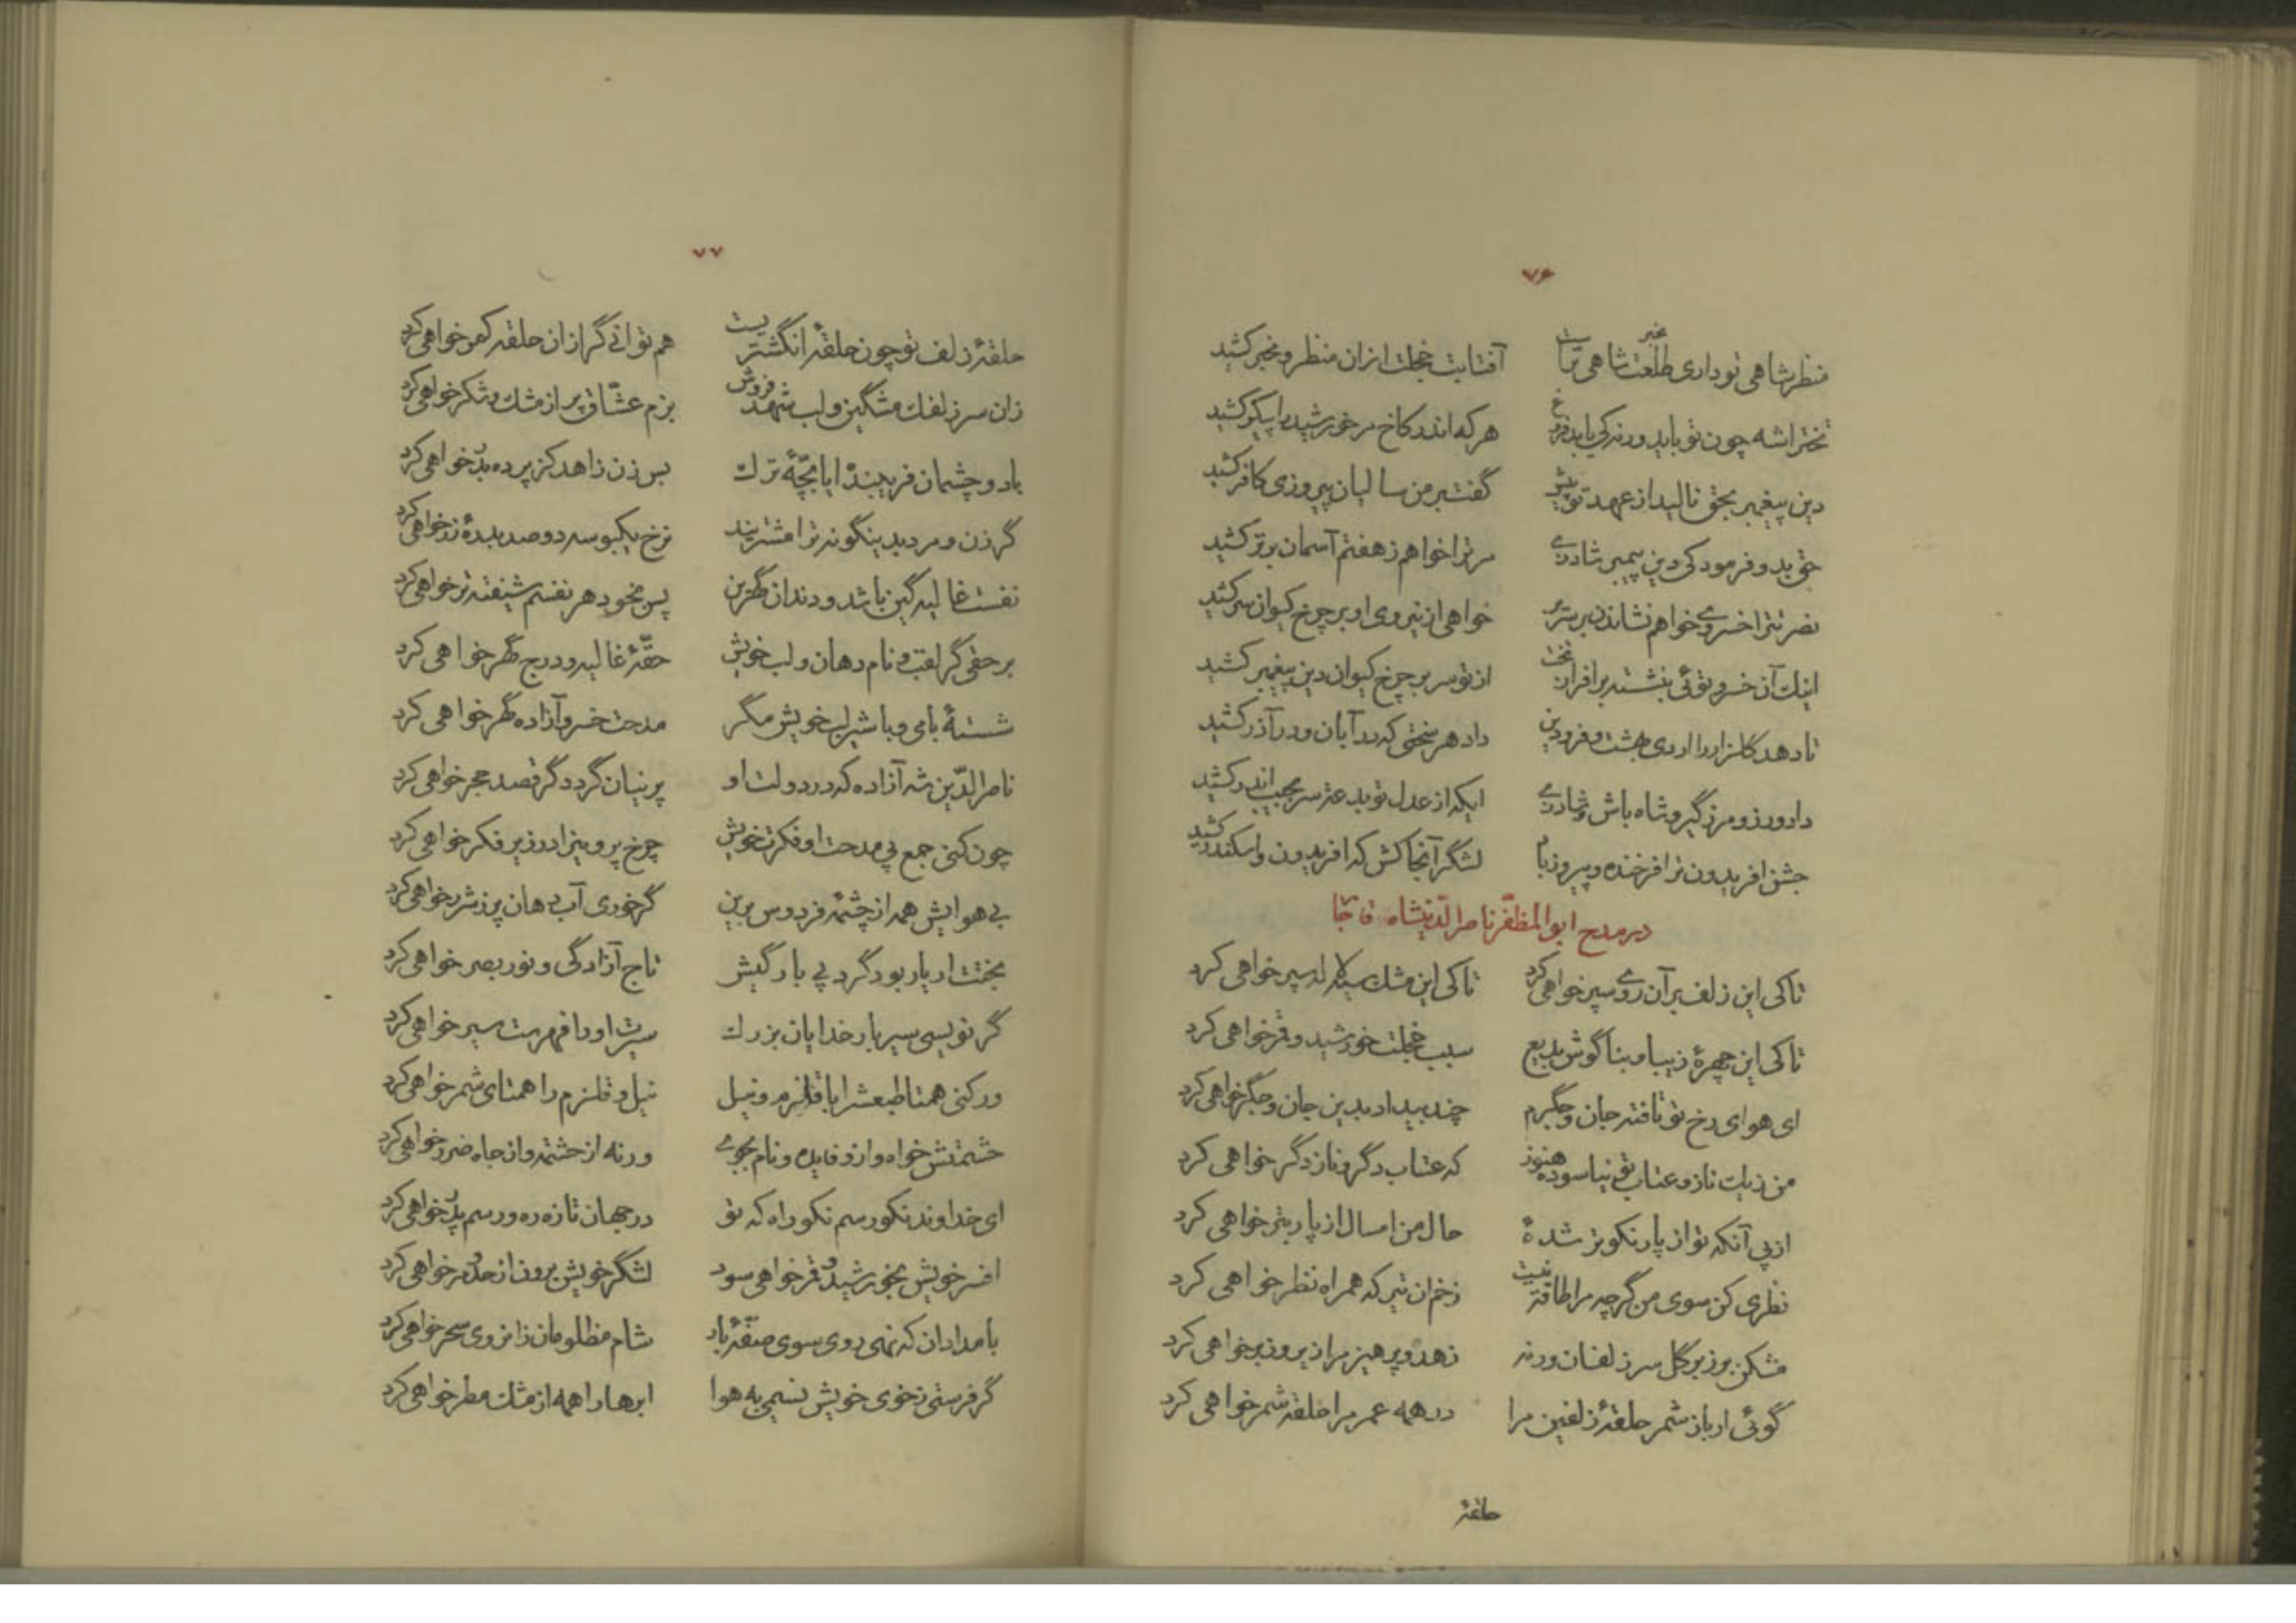 ۷۶
منظر شاهی تو داری طلعت شاهی تراست آفتابت خجلت از آن منظر و مخبر کشید
تخت را شه چون تو باید ورنه کی یابد فروغ هر که اندر کاخ مر خورشید را پیکر کشید
دین پیغمبر بحق نالید از عهد تو پیش گفت بر من سالیان پیروزی کافر کشید
حق بدو فرمود کی دین پیمبر شاد زی مر ترا خواهم ز هفتم آسمان برتر کشید
نصرتت را خسروی خواهم نشاندن بر سریر خواهی از نیروی او بر چرخ کیوان سر کشید
اینک آن خسرو توئی بنشسته بر افراز تخت از تو سر بر چرخ کیوان دین پیغمبر کشید
تا دهد گلزار را اردی بهشت و فرودین داد هر سختی که در آبان و در آذر کشید
داد ورز و مرز گیر و شاه باش و شاد زی ایکه از عدل تو بدعت سر بجیب اندر کشید
جشن افریدون ترا فرخنده و پیروز باد لشگر آنجا کش که افریدون و اسکندر کشید
در مدح ابوالمظفر ناصرالدینشاه قاجار
تا کی این زلف بر آن روی سپر خواهی کرد تا کی این مشک سیه لاله سپر خواهی کرد
تا کی این چهرهٔ زیبا و بناگوش بدیع سبب خجلت خورشید و قمر خواهی کرد
ای هوای رخ تو تافته جان و جگرم چند بیداد بدین جان و جگر خواهی کرد
من ز یک ناز و عتاب تو نیاسوده هنوز که عتاب دگر و ناز دگر خواهی کرد
از پی آنکه تو از پار نکوتر شدهٔ حال من امسال از پار بتر خواهی کرد
نظری کن سوی من گرچه مرا طاقت نیست زخم آن تیر که همراه نظر خواهی کرد
مشکن بر زبر گل سر زلفان ورنه زهد و پرهیز مرا زیر و زبر خواهی کرد
گوئی ار باز شمر حلقهٔ زلفین مرا در همه عمر مرا حلقه شمر خواهی کرد
حلقهٔ
۷۷
حلقهٔ زلف تو چون حلقهٔ انگشتریست هم توانی گر از آن حلقه کمر خواهی کرد
زان سر زلفک مشگین و لب شهد فروش بزم عشاق پر از مشک و شکر خواهی کرد
با دو چشمان فریبندهٔ ایا بچهٔ ترک بس زن زاهد کز پرده بدر خواهی کرد
گر زن و مرد بدینگونه ترا مشتریند نرخ یکبوسه دو صد بدرهٔ زر خواهی کرد
نفست غالیه گین باشد و دندان گهرین پس بخود هر نفسم شیفته تر خواهی کرد
بر حقی گر لقب و نام دهان و لب خویش حقهٔ غالیه و درج گهر خواهی کرد
شستهٔ با می و با شیر لب خویش مگر مدحت خسرو آزاده گهر خواهی کرد
ناصرالدین شه آزاده که در دولت او پرنیان گردد گر قصد حجر خواهی کرد
چون کنی جمع پی مدحت او فکرت خویش چرخ پروین را در زیر فکر خواهی کرد
بی هوایش همه از چشمهٔ فردوس برین گر خوری آب دهان پر ز شرر خواهی کرد
بختت ار یار بود گرد پی بارگیش تاج آزادگی و نور بصر خواهی کرد
گر نویسی سیر بار خدایان بزرگ سیرت او را فهرست سیر خواهی کرد
ور کنی همتا طبعش را با قلزم و نیل نیل و قلزم را همتای شمر خواهی کرد
حشمتش خواه و ازو فایده و نام بجوی ورنه از حشمت و از جاه ضرر خواهی کرد
ای خداوند نکو رسم نکو راه که تو در جهان تازه ره و رسم پدر خواهی کرد
افسر خویش بخورشید و قمر خواهی سود لشگر خویش برون از حد و مر خواهی کرد
بامدادان که نهی روی سوی صفهٔ بار شام مظلومان زانروی سحر خواهی کرد
گر فرستی ز خوی خویش نسیمی به هوا ابرها را همه از مشک مطر خواهی کرد